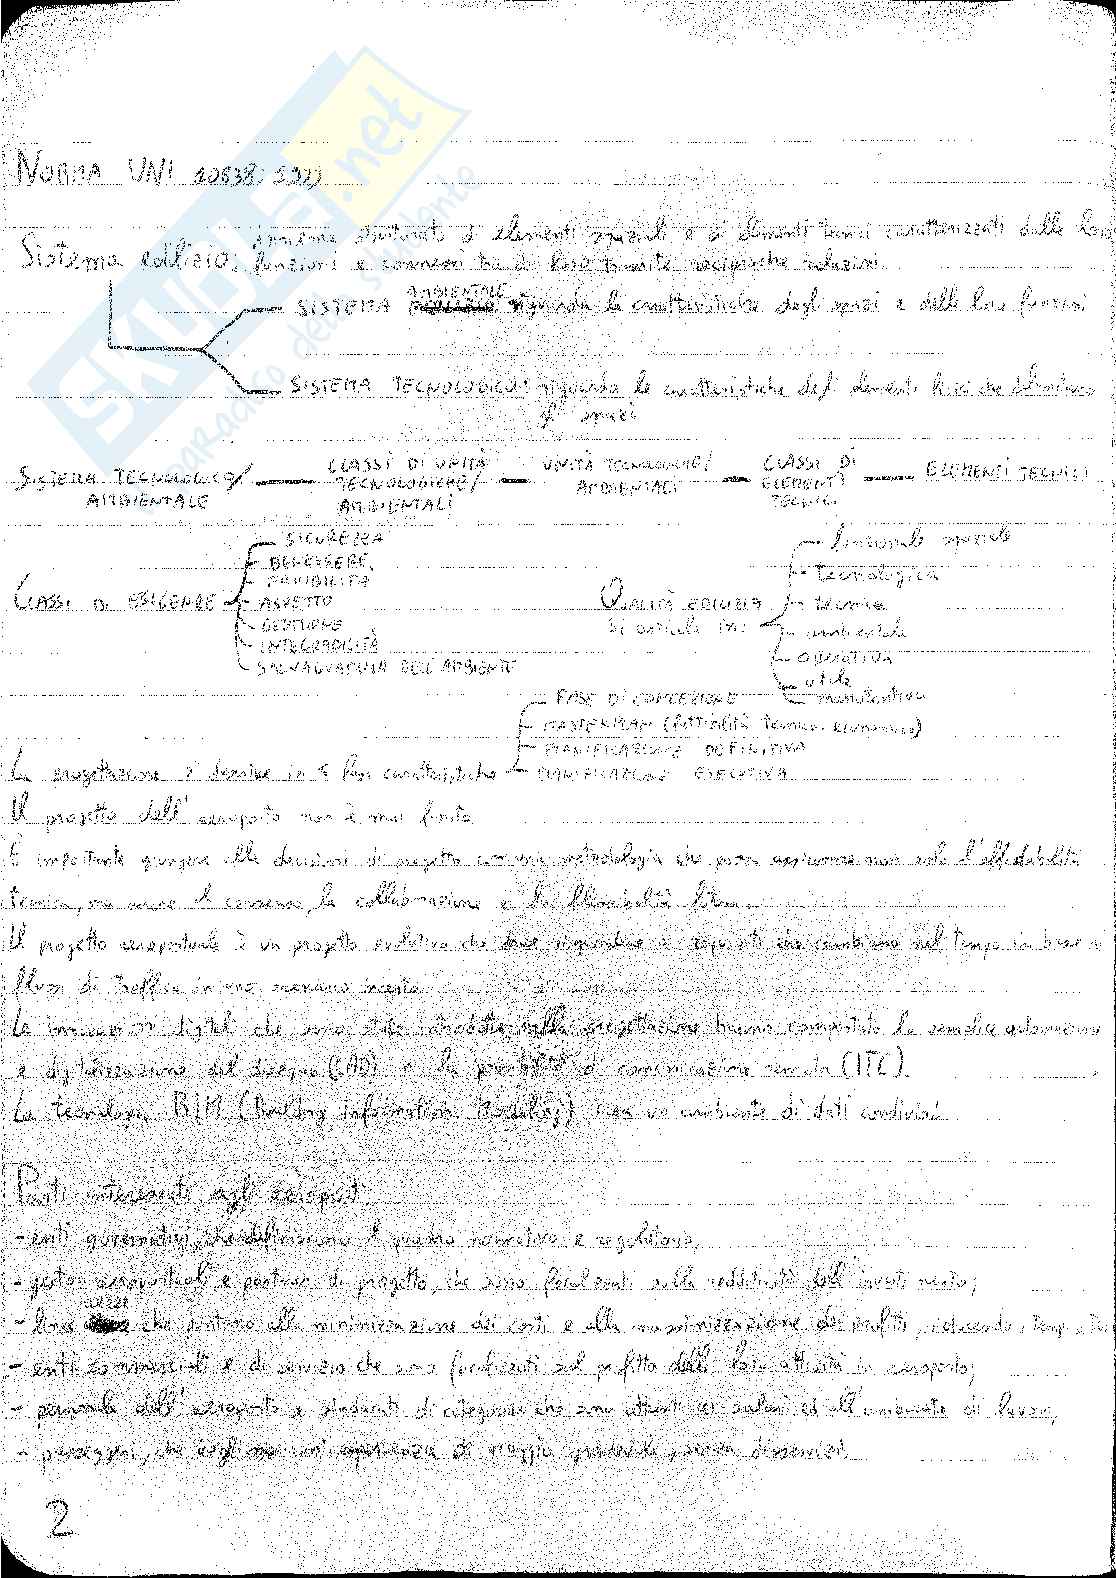 NORMA UNI
Sistema edilizio: insieme strutturato di elementi spaziali e di elementi tecnici caratterizzati dalle loro
funzioni e connessi tra di loro tramite reciproche relazioni
SISTEMA AMBIENTALE riguarda le caratteristiche degli spazi e delle loro funzioni
SISTEMA TECNOLOGICO: riguarda le caratteristiche degli elementi fisici che delimitano
gli spazi
SISTEMA TECNOLOGICO/AMBIENTALE — CLASSI DI UNITÀ TECNOLOGICHE/AMBIENTALI — UNITÀ TECNOLOGICHE/AMBIENTALI — CLASSI DI ELEMENTI TECNICI — ELEMENTI TECNICI
CLASSI DI ESIGENZE
SICUREZZA
BENESSERE
FRUIBILITÀ
ASPETTO
GESTIONE
INTEGRABILITÀ
SALVAGUARDIA DELL'AMBIENTE
QUALITÀ EDILIZIA
SI ARTICOLA IN:
funzionale spaziale
tecnologica
tecnica
ambientale
OPERATIVA
utile
manutentiva
La progettazione si descrive in fasi caratteristiche
FASE DI CONCEZIONE
MASTERPLAN (fattibilità tecnico-economica)
PIANIFICAZIONE DEFINITIVA
PIANIFICAZIONE ESECUTIVA
Il progetto dell'aeroporto non è mai finito
È importante giungere alle decisioni di progetto con una metodologia che possa assicurare non solo l'affidabilità
tecnica, ma anche il consenso, la collaborazione e la flessibilità
Il progetto aeroportuale è un progetto evolutivo che deve rispondere a requisiti che cambiano nel tempo in base a
flussi di traffico in uno scenario incerto
Le innovazioni digitali che sono state introdotte nella progettazione hanno comportato la semplice automazione
e digitalizzazione del disegno (CAD) e la possibilità di comunicazione remota (ITC).
La tecnologia BIM (Building Information Modeling) crea un ambiente di dati condivisi
Parti interessate agli aeroporti
- enti governativi, che definiscono il quadro normativo e regolatorio;
- gestori aeroportuali e partner di progetto, che sono focalizzati sulla redditività dell'investimento;
- linee aeree che puntano alla minimizzazione dei costi e alla massimizzazione dei profitti, riducendo i tempi
- enti commerciali e di servizio che sono focalizzati sul profitto delle loro attività in aeroporto;
- personale dell'aeroporto e sindacati di categoria che sono attenti ai salari ed all'ambiente di lavoro;
- passeggeri, che vogliono un'esperienza di viaggio gradevole, senza disservizi.
2
SKUOLA.net
paradiso dello studente